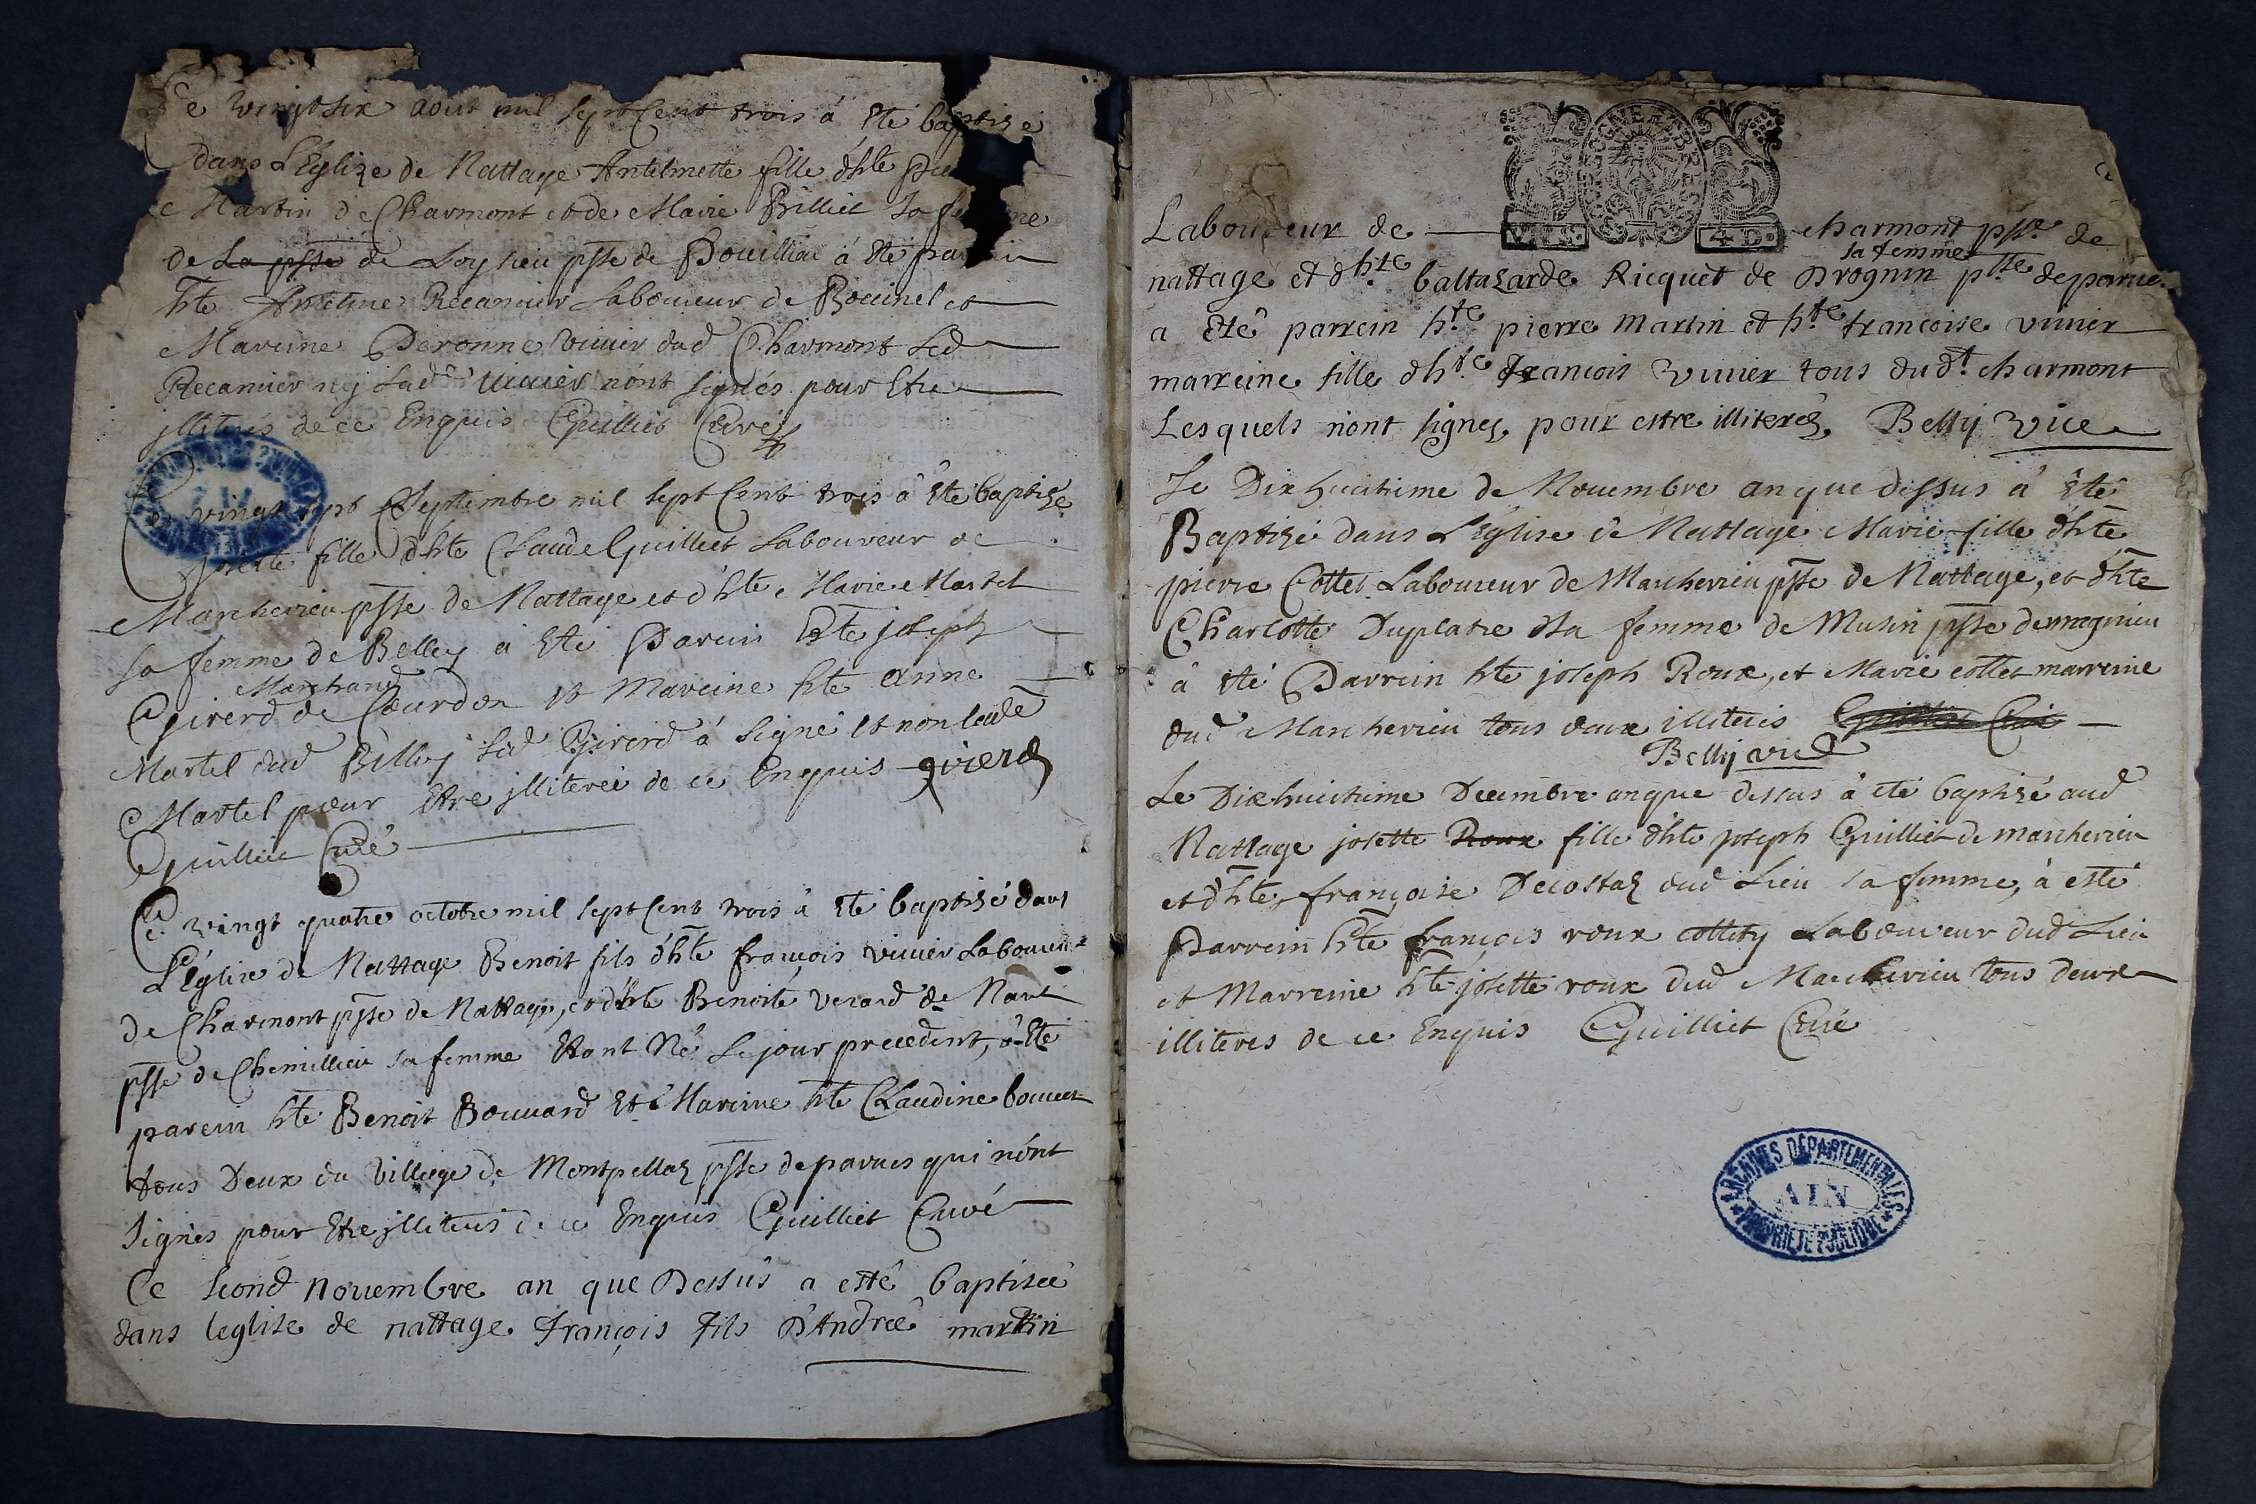 Ce vingt six aout mil sept Cent trois á Eté baptizé
dans L'Eglize de Nattage Antelmette fille d'hte
Martin de Charmont et de Marie Billiet sa femme
de La psse de Loysieu psse de á Eté
hte Antelme Recamier Laboureur de et
Mareine Peronne Vivier dud Charmont Led
Recamier nj Lad Vivier nónt signés pour Etre
illiterés de ce Enquis Guilliet Curé
Ce vingt sept Septembre mil sept Cent trois á Eté baptizé
fille d'hte Claude Guilliet Laboureur de
Marcherieu psse de Nattage et d'hte Marie Martel
sa femme de Belley á Eté Parein hte joseph
Marchand
Girerd de Cœurdon et Mareine hte Anne
Martel dud Belley Led Girerd á signé et non ladte
Martel pour Etre illiterée de ce Enquis girerd
Guilliet Curé
Ce vingt quatre octobre mil sept Cent trois á Eté baptizé dans
L'Eglise de Nattage Benoit fils d'hte françois vivier Laboureur
de Charmont psse de Nattage, et d'hte Benoite verard de Nant
psse de Chemillieu sa femme Etant Né Le jour precedent, á Eté
parein hte Benoit Bouvard Et Mareine hte Claudine bouvet
tous Deux du Village de Montpellaz psse de parves qui nónt
signés pour Etre illiterés de ce Enquis Guilliet Curé
Ce second novembre an que Dessus a esté baptisée
dans leglise de nattage françois fils d'Andreé martin
Laboureur de charmont psse de
sa femme
nattage et d'hte baltazarde Ricquet de Prognin psse de parve.
a Eté parrein hte pierre martin et hte francoise vivier
marreine fille d'hte francois vivier tous du dt charmont
Lesquels nont signez pour estre illiterés, Belly vice
Le Dix huictieme de Novembre an que dessus á Eté
Baptizé dans L'Eglise de Nattage Marie fille d'hte
pierre Cottet Laboureur de Marcherieu psse de Nattage, et d'hte
Charlotte Duplatre sa femme de Musin psse de magnieu
á été Parrein hte joseph Roux, et Marie cottet marreine
dud Marcherieu tous deux illiterés Guilliet Curé
Belly vice
Le Dix huictieme Decembre an que dessus á été baptizé aud
Nattage josette Roux fille d'hte joseph Guilliet de marcherieu
et d'hte françoise Decostaz dud Lieu sa femme, á esté
Parrein hte françois roux Laboureur dud Lieu
et Marreine hte josette roux dud Marcherieu tous deux
illiterés de ce Enquis Guilliet Curé
4 D.
ARCHIVES DÉPARTEMENTALES
AIN
PROPRIÉTÉ PUBLIQUE